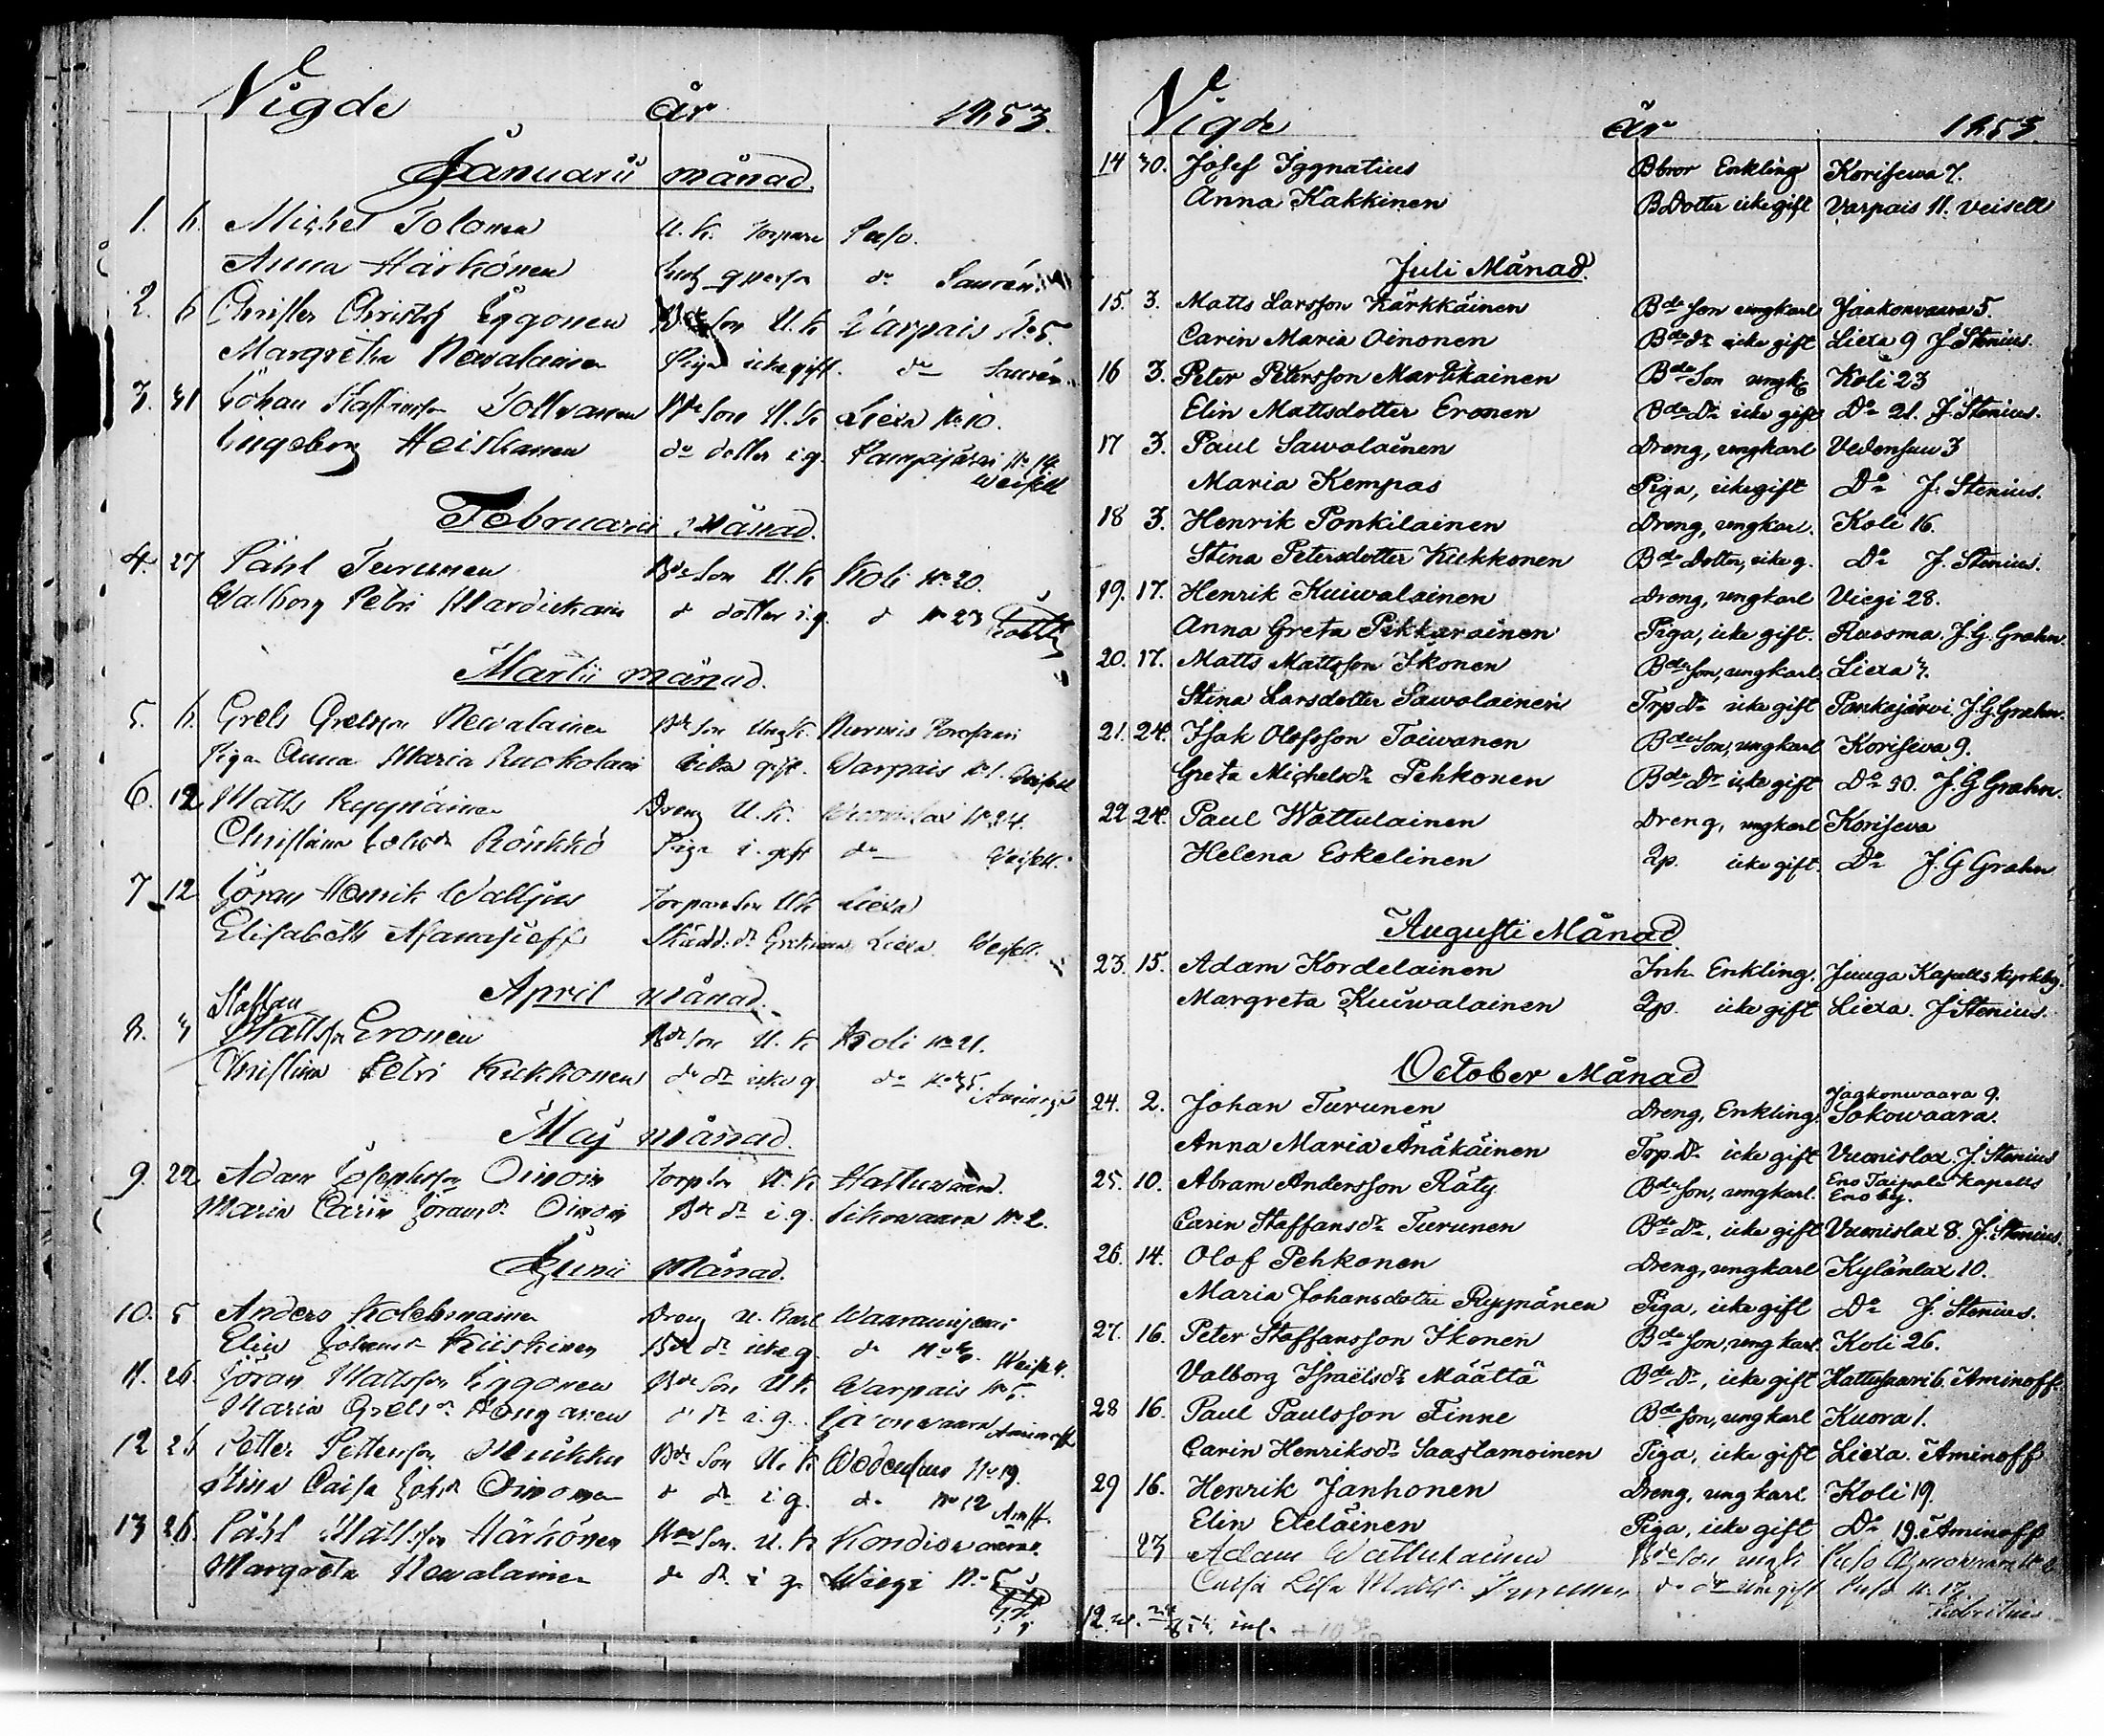 Vigde år 1853.
Januarii månad.
1. 6. Michel Tolonen U. K. Torpare Puso.
Anna Härkönen do
2. 6 Christer Christofs Iggonen Bde Son U. K Varpais No 5.
Margretha Newalainen Piga icke gift. do
3. 31 Johan Staffansson Tolvanen Bde Son U. K Liexa No 10.
Ingeborg Heiskanen do dotter i.g. Pankajärvi No 14.
Weisell
Februarii Månad.
4. 27 Påhl Turunen Bde Son U. K Koli No 20.
Walborg Petri Mardikain d dotter i.g. d No 23
Martii månad.
5. 6. Grels Grelsson Newalainen Bde Son Ung K. Nurmis Porosaari
Pigan Anna Maria Ruokolain icke gift. Varpais No 1. Weisell
6. 12 Matts Ryynäinen Dreng U. K. Wuonislax No 24.
Christina Rönkkö Piga i. gift do Weisell.
7 12 Göran Henrik Walljus Torpare Son UK Liexa
Elisabeth Afanasieff Liexa. Weisell.
April månad.
Staffan
8. 3 Mattsson Eronen Bde Son U. K Koli No 21.
Christina Petri Kukkonen do dr icke g. do No 35. Aminoff
Maj månad.
9. 22 Adam Josephsson Oinoin Torp Son U. K Hattuvaara.
Maria Carin Göransdr Oinoin Bde dr i.g. Sikovaara No 2.
Junii Månad.
10. 5 Anders Kolehmainen Dreng U. Karl
Elin Johansdr Kiiskinen Bde dr icke g. do No 6. Weisell.
11. 26. Göran Mattsson Iggonen Bde Son UK Varpais No 5.
Maria Grelsdr Ponganen do dr i.g. Aminoff
12 26 Petter Pettersson Mukku Bde Son U. K Wedensuu No 19.
Stina Caisa Johsdr Oinonen d dr i g. do No 12 Amff.
13 26. Påhl Mattsson Härkönen Bde Son. U. K Kondiovaara.
Margreta Newalainen do dr i g. Wiegi No 5
Vigde år 1853.
14 30. Josef Iggnatius Bbror Enkling Korisewa 7.
Anna Kakkinen BDotter icke gift Varpais 11. Veisell
Juli Månad.
15. 3. Matts Larsson Kärkkäinen Bde Son ungkarl Jaakonvaara 5.
Carin Maria Oinonen Bde dr icke gift Liexa 9 J. Stenius.
16 3. Peter Petersson Martikainen Bde Son ungk Koli 23
Elin Mattsdotter Eronen Bde Dr icke gift Do 21. J. Stenius.
17 3. Paul Sawolainen Dreng, ungkarl Vedensuu 3
Maria Kempas Piga, icke gift Do J. Stenius.
18 3. Henrik Ponkilainen Dreng, ungkar. Koli 16.
Stina Petersdotter Kukkonen Bde Dotter, icke g. Do J. Stenius.
19. 17. Henrik Kuiwalainen Dreng, ungkarl Viegi 28.
Anna Greta Pikkarainen Piga, icke gift. Ruosma. J. G. Grahn.
20. 17. Matts Mattsson Ikonen Bde Son, ungkarl Liexa 3.
Stina Larsdotter Sawolainen Trp Dr icke gift Pankajärvi, J. G. Grahn.
21. 24. Isak Olofsson Toiwanen Bde Son, ungkarl Koriseva 9.
Greta Michelsdr Pehkonen Bde Dr icke gift Do 30. J. G Grahn.
22 24. Paul Wattulainen Dreng, ungkarl Koriseva
Helena Eskelinen Qp. icke gift. Do J. G Grahn
Augusti Månad.
23. 15. Adam Kordelainen Inh. Enkling. Juuga Kapells kyrkby.
Margreta Kuiwalainen Qp. icke gift Liexa. J Stenius.
October Månad
24. 2. Johan Turunen Dreng, Enkling. Jaakonwaara 9. Sokowaara.
Anna Maria Änäkäinen Trp. Dr icke gift Vuonislax. J. Stenius
25. 10. Abram Andersson Räty Bde Son, ungkarl. Eno Taipale Kapells Eno by.
Carin Staffansdr Turunen Bde Dr, icke gift Vuonislax 8. J. Stenius.
26. 14. Olof Pehkonen Dreng, ungkarl Kylänlax 10.
Maria Johansdotter Ryynänen Piga, icke gift Do J. Stenius.
27. 16. Peter Staffansson Ikonen Bde Son, ungkarl Koli 26.
Valborg Israëlsdr Määttä Bde Dr, icke gift Hattusaari 6. Aminoff.
28 16. Paul Paulsson Finne Bde Son, ungkarl Kuora 1.
Carin Henriksdr Saastamoinen Piga, icke gift Liexa. Aminoff
29 16. Henrik Janhonen Dreng, ungkarl Koli 19.
Elin Eteläinen Piga, icke gift Do 19. Aminoff
23 Adam Wattulainen Bde Son ungk Puso
Caisa Lisa Mattsdr Turunen do dr icke gift Puso N. 17.